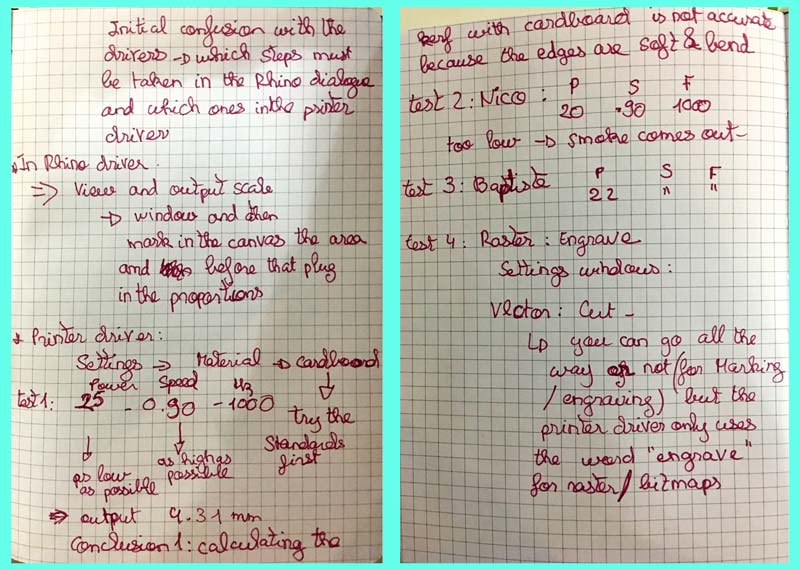 Initial confusion with the
drivers → which steps must
be taken in the Rhino dialogue
and which ones in the printer
driver
In Rhino driver.
⇒ View and output scale
→ window and then
mark in the canvas the area
and before that plug
in the proportions
Printer driver:
Settings → Material → cardboard
Power Speed Hz ↓
test 1: 25 - 0.90 - 1000 try the
Standards
first
↓ ↓
as low as high as
as possible possible
⇒ output 4.31 mm
Conclusion 1: calculating the
kerf with cardboard is not accurate
because the edges are soft & bend
P S F
test 2: Nico : 20 .90 1000
too low → smoke comes out -
P S F
test 3: Baptiste 22 " "
test 4: Raster: Engrave
Settings windows:
Vector: Cut -
↳ you can go all the
way or not (for Marking
/ engraving) but the
printer driver only uses
the word "engrave"
for raster / bitmaps